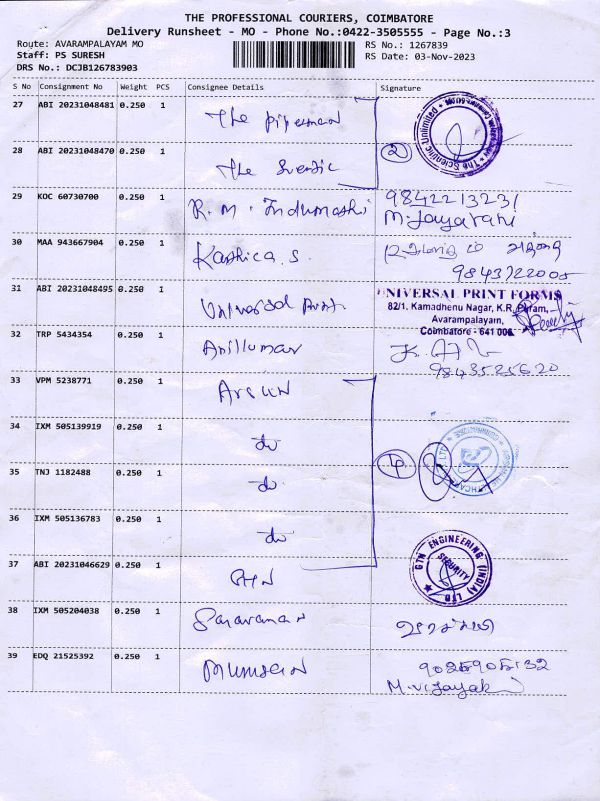 THE PROFESSIONAL COURIERS, COIMBATORE
Delivery Runsheet - MO - Phone No.:0422-3505555 - Page No.:3
Route: AVARAMPALAYAM MO
Staff: PS SURESH
DRS No.: DCJB126783903
RS No.: 1267839
RS Date: 03-Nov-2023
S No Consignment No Weight PCS Consignee Details Signature
27 ABI 20231048481 0.250 1 The Piperman
28 ABI 20231048470 0.250 1 The 2
The Scientific Unlimited
29 KOC 60730700 0.250 1 R.M. Indumathi 9842213231
M. Jayarani
30 MAA 943667904 0.250 1 Karthica. S.
9843722005
31 ABI 20231048495 0.250 1 Universal Print.
UNIVERSAL PRINT FORMS
82/1, Kamadhenu Nagar, K.R. Puram,
Avarampalayam,
Coimbatore - 641 006
32 TRP 5434354 0.250 1 Anilkumar
9843525620
33 VPM 5238771 0.250 1
34 IXM 505139919 0.250 1 do
35 TNJ 1182488 0.250 1 do 4
36 IXM 505136783 0.250 1 do
37 ABI 20231046629 0.250 1 GTN
GTN ENGINEERING (INDIA) LTD
SECURITY
38 IXM 505204038 0.250 1 Saravanan
39 EDQ 21525392 0.250 1
M. Vijayak